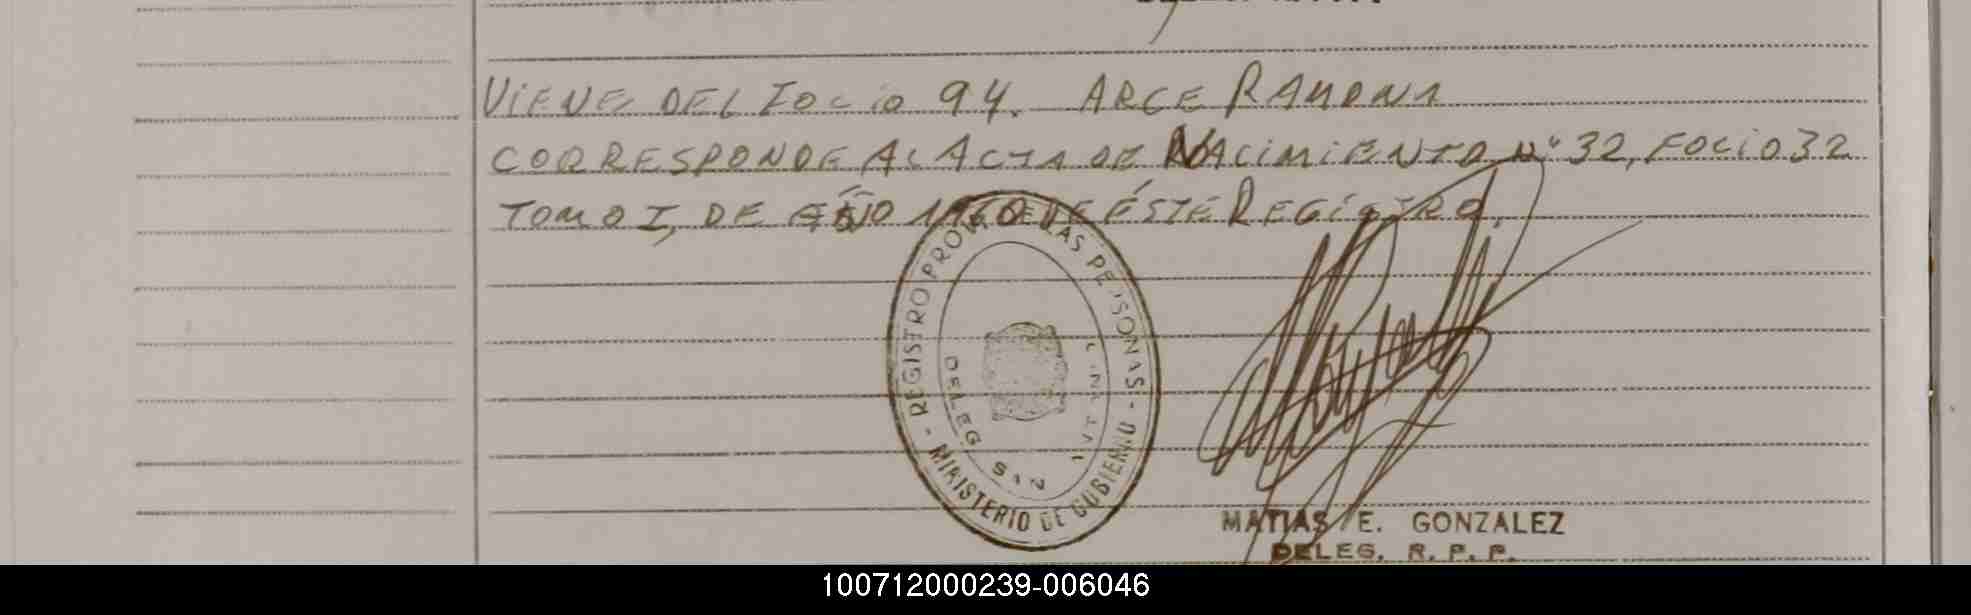 VIENE DEL FOLIO 94. ARCE RAMONA
CORRESPONDE AL ACTA DE NACIMIENTO Nº 32, FOLIO 32
TOMO I, DE AÑO 1960 DE ÉSTE REGISTRO.
REGISTRO PROV. DE LAS PERSONAS - MINISTERIO DE GOBIERNO -
DELEG SAN
MATIAS E. GONZALEZ
DELEG. R. P. P.
100712000239-006046